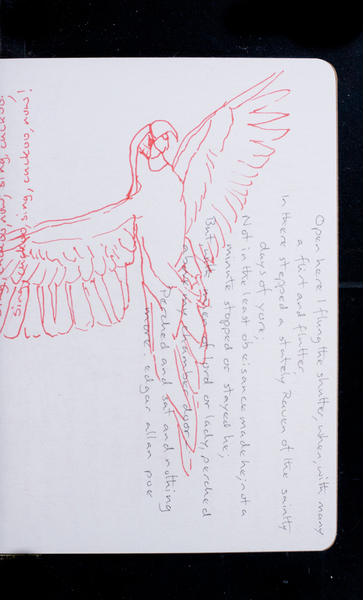 Open here I flung the shutter, when, with many
a flirt and flutter
In there stepped a stately Raven of the saintly
days of yore;
Not in the least obeisance made he; not a
minute stopped or stayed he;
But, with mien of lord or lady, perched
above my chamber door
Perched and sat and nothing
more edgar allan poe
sing, cuckoo, now!
now, sing, cuckoo,